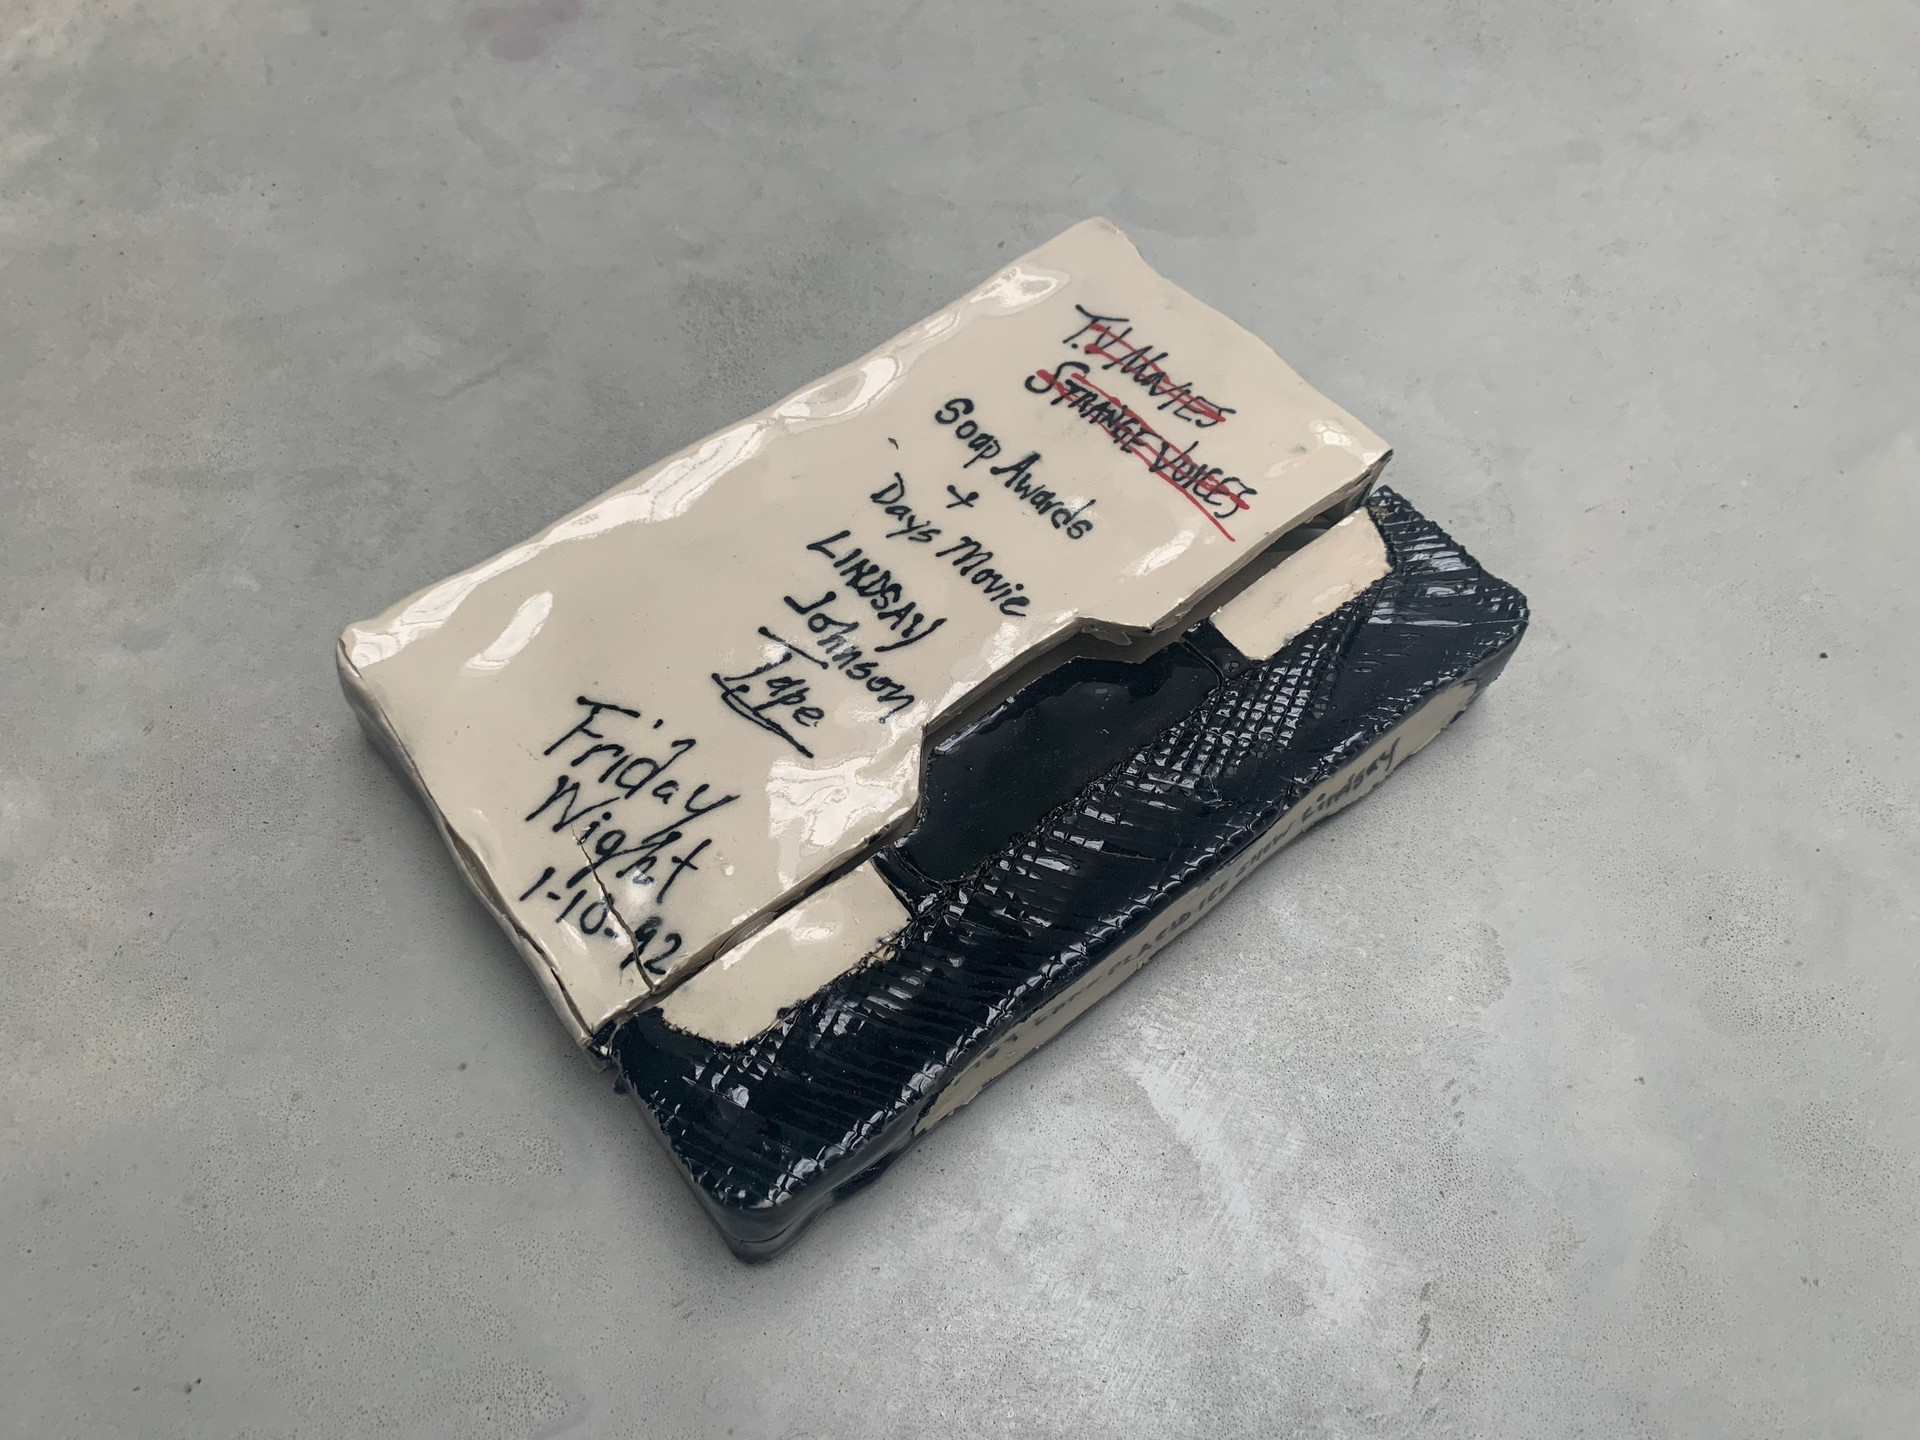 T.V Movies
STRANGE VOICES
Soap Awards
+
Days Movie
LINDSAY
Johnson
Tape
Friday
Night
1-10-92
PLACID ICE SHOW Lindsay